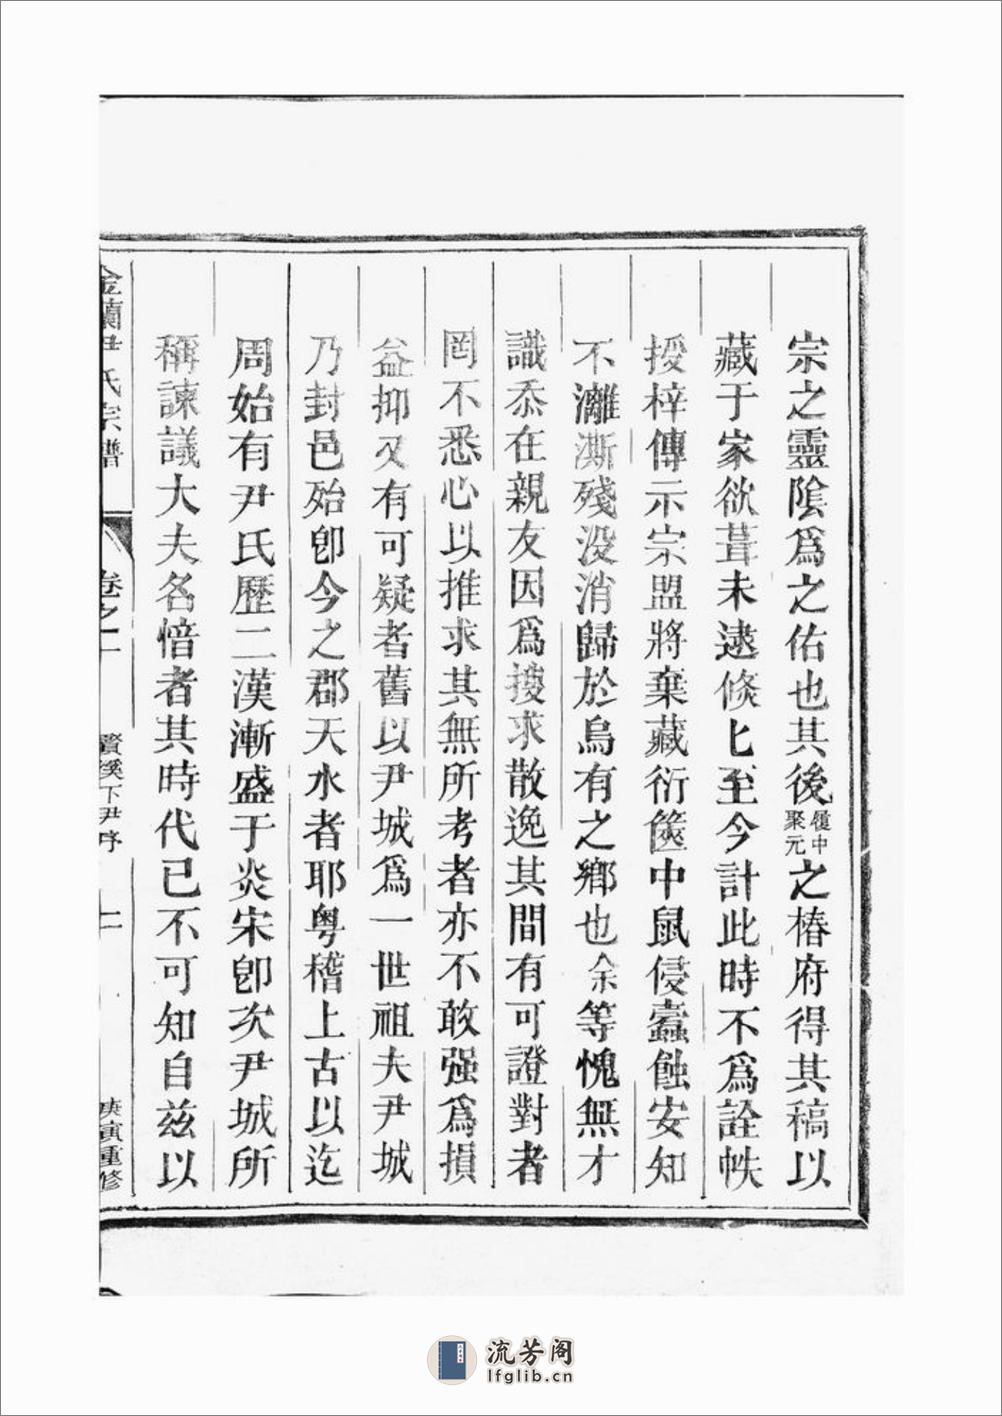 宗之靈陰爲之佑也其後履中聚元之椿府得其稿以
藏于家欲葺未逮倐匕至今計此時不爲詮帙
授梓傳示宗盟將棄藏衍篋中鼠侵蠹蝕安知
不漓澌殘没消歸於烏有之鄉也余等愧無才
識忝在親友因爲搜求散逸其間有可證對者
罔不悉心以推求其無所考者亦不敢强爲損
益抑又有可疑者舊以尹城爲一世祖夫尹城
乃封邑殆卽今之郡天水者耶粤稽上古以迄
周始有尹氏歷二漢漸盛于炎宋卽次尹城所
稱諫議大夫名愔者其時代已不可知自兹以
金蘭尹氏宗譜
卷之一
賢溪下尹序
二
庚寅重修
流芳阁
lfglib.cn